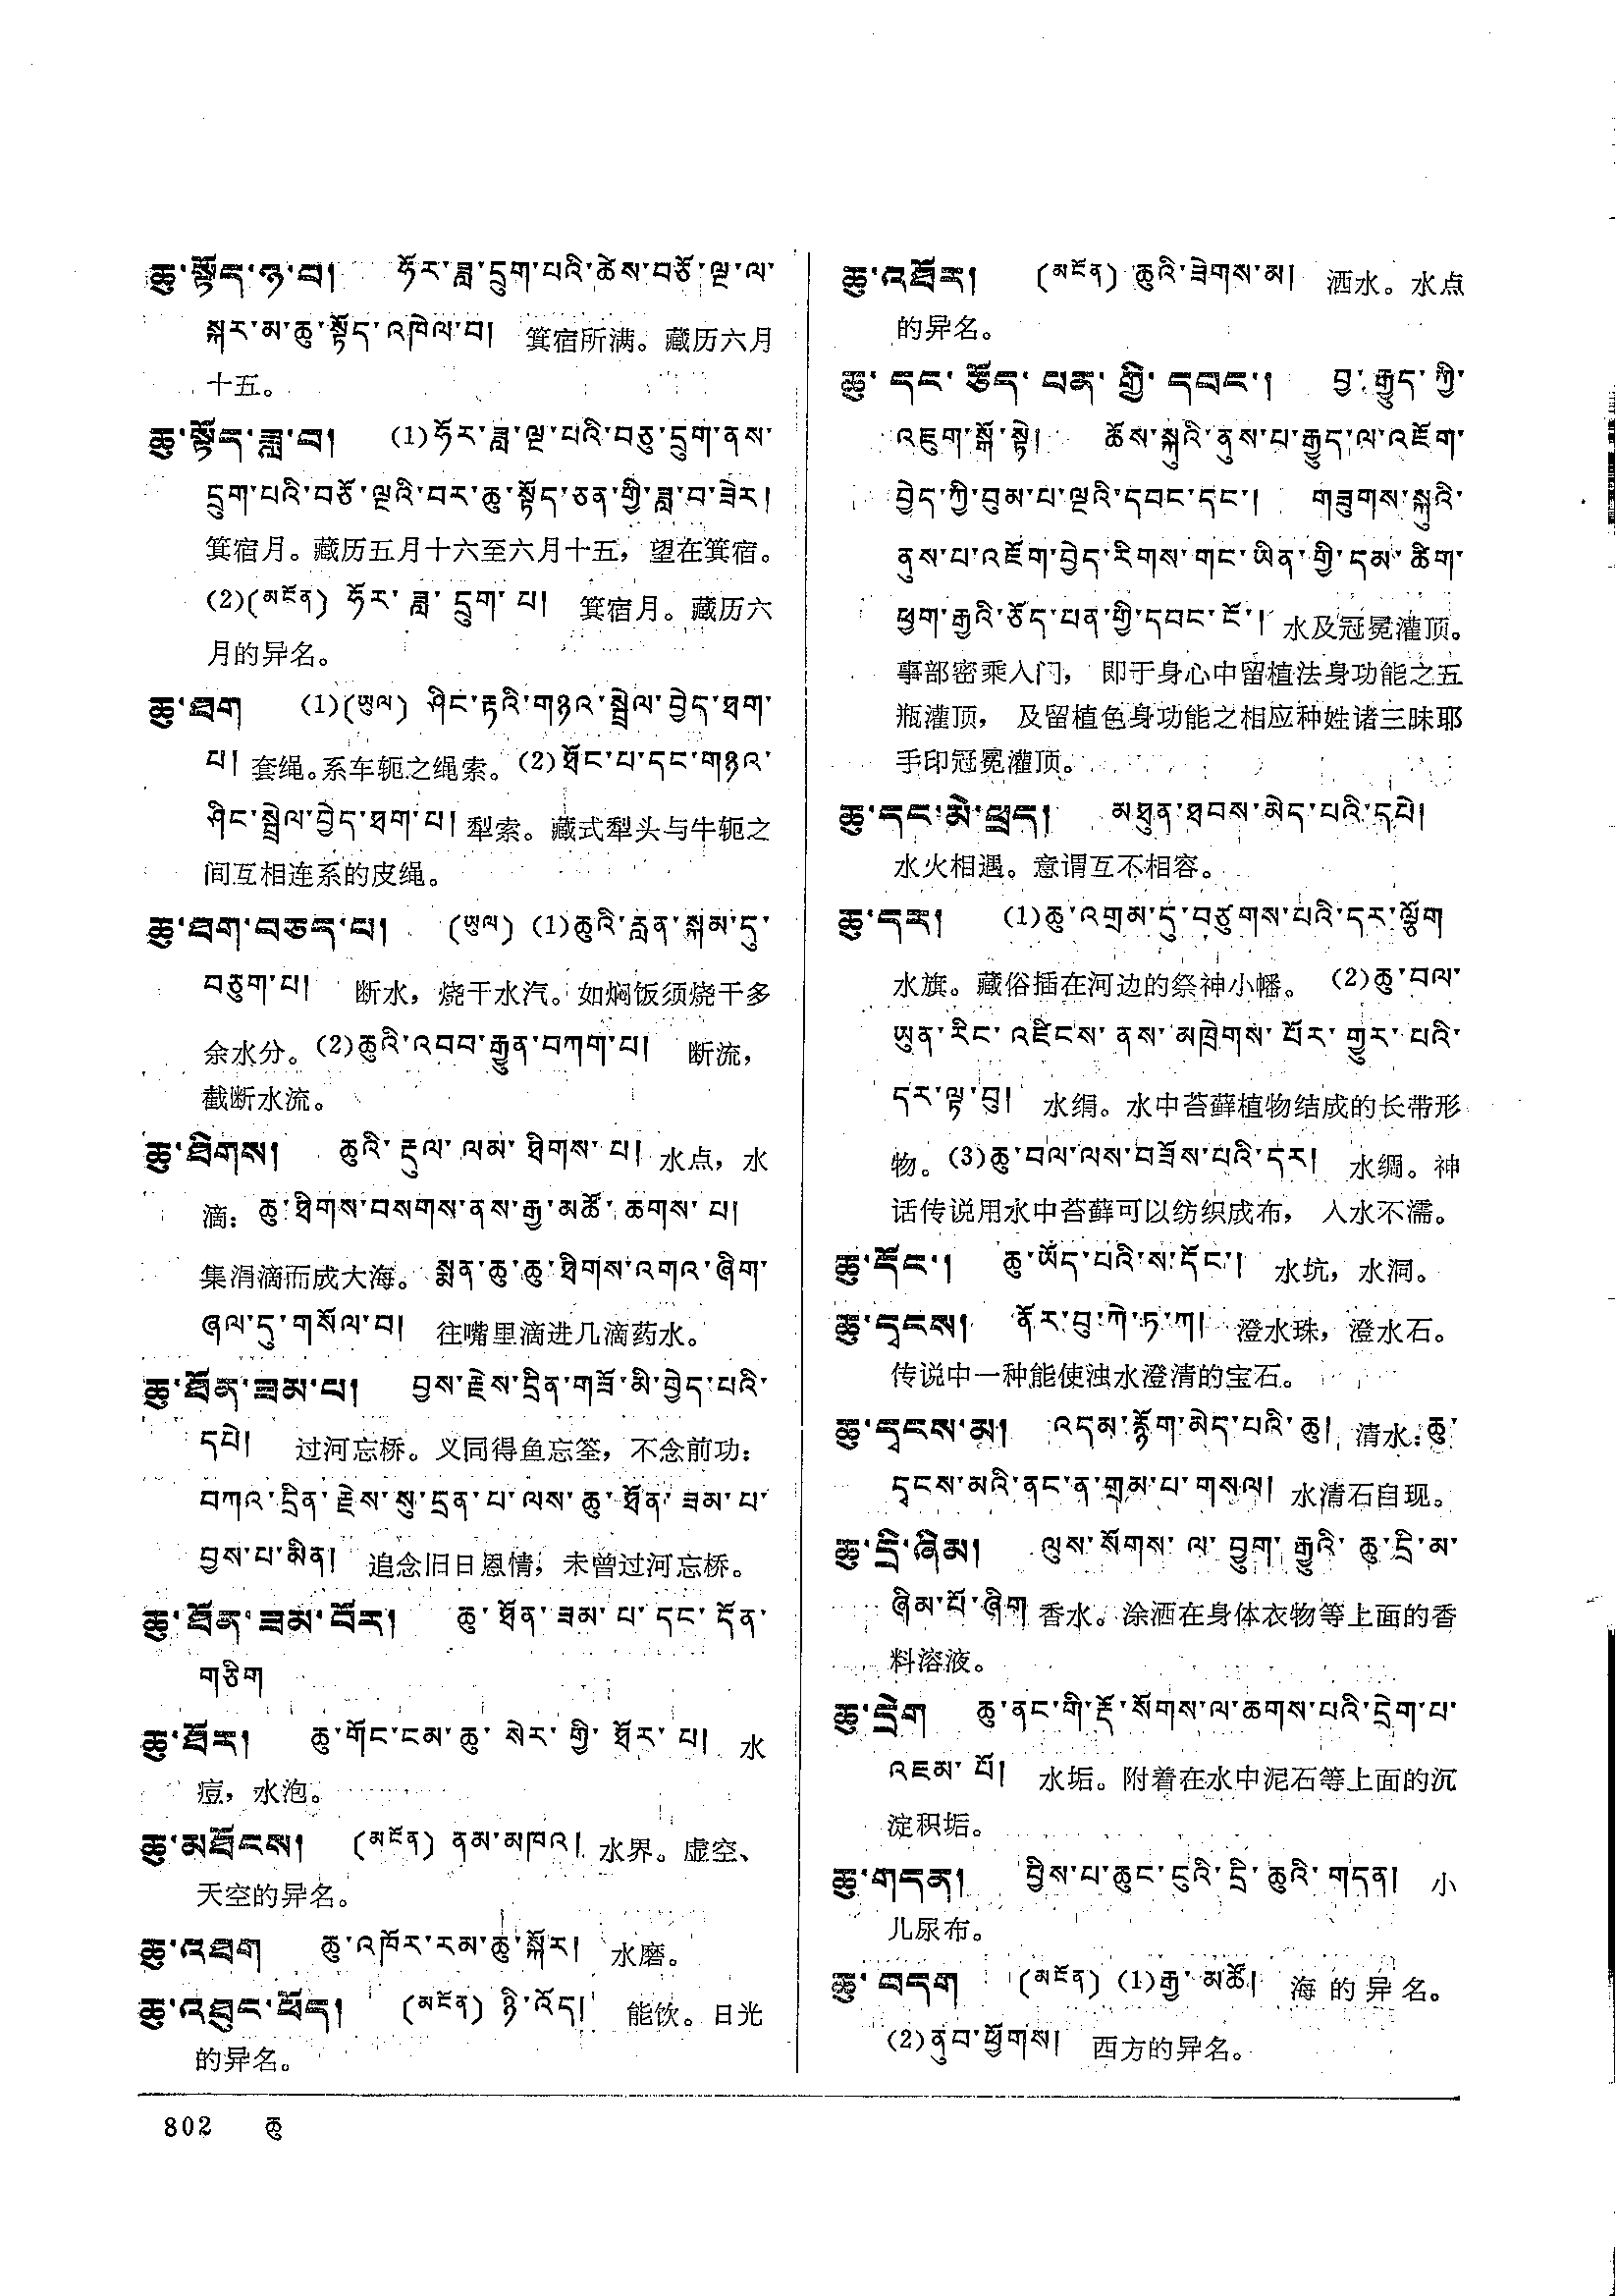 ཆུ་སྟོད་ཉ་བ། ཧོར་ཟླ་དྲུག་པའི་ཚེས་བཅོ་ལྔ་ལ་
སྐར་མ་ཆུ་སྟོད་འཁེལ་བ། 箕宿所满。藏历六月
十五。
ཆུ་སྟོད་ཟླ་བ། (1)ཧོར་ཟླ་ལྔ་པའི་བཅུ་དྲུག་ནས་
དྲུག་པའི་བཅོ་ལྔའི་བར་ཆུ་སྟོད་ཅན་གྱི་ཟླ་བ་ཟེར།
箕宿月。藏历五月十六至六月十五，望在箕宿。
(2)(མངོན) ཧོར་ཟླ་དྲུག་པ། 箕宿月。藏历六
月的异名。
ཆུ་ཐག (1)(ཡུལ) ཤིང་རྟའི་གཉའ་སྦྲེལ་བྱེད་ཐག་
པ། 套绳。系车轭之绳索。(2)ཐོང་པ་དང་གཉའ་
ཤིང་སྦྲེལ་བྱེད་ཐག་པ། 犁索。藏式犁头与牛轭之
间互相连系的皮绳。
ཆུ་ཐག་བཅད་པ། (ཡུལ) (1)ཆུའི་རླན་སྐམ་དུ་
བཅུག་པ། 断水，烧干水汽。如焖饭须烧干多
余水分。(2)ཆུའི་འབབ་རྒྱུན་བཀག་པ། 断流，
截断水流。
ཆུ་ཐིགས། ཆུའི་རྡུལ་ལམ་ཐིགས་པ། 水点，水
滴：ཆུ་ཐིགས་བསགས་ནས་རྒྱ་མཚོ་ཆགས་པ།
集涓滴而成大海。སྨན་ཆུ་ཆུ་ཐིགས་འགའ་ཞིག་
ཞལ་དུ་གསོལ་བ། 往嘴里滴进几滴药水。
ཆུ་ཐོན་ཟམ་པ། བྱས་རྗེས་དྲིན་གཟོ་མི་བྱེད་པའི་
དཔེ། 过河忘桥。义同得鱼忘筌，不念前功：
བཀའ་དྲིན་རྗེས་སུ་དྲན་པ་ལས་ཆུ་ཐོན་ཟམ་པ་
བྱས་པ་མིན། 追念旧日恩情，未曾过河忘桥。
ཆུ་ཐོན་ཟམ་བོར། ཆུ་ཐོན་ཟམ་པ་དང་དོན་
གཅིག
ཆུ་ཐོར། ཆུ་གོང་ངམ་ཆུ་སེར་གྱི་ཐོར་པ། 水
痘，水泡。
ཆུ་མཐོངས། (མངོན) ནམ་མཁའ། 水界。虚空、
天空的异名。
ཆུ་འཐག ཆུ་འཁོར་རམ་ཆུ་སྐོར། 水磨。
ཆུ་འཐུང་ཕོད། (མངོན) ཉི་འོད། 能饮。日光
的异名。
ཆུ་འཐོར། (མངོན) ཆུའི་ཟེགས་མ། 洒水。水点
的异名。
ཆུ་དང་ཅོད་པན་གྱི་དབང་། བྱ་རྒྱུད་ཀྱི་
འཇུག་སྒོ་སྟེ། ཆོས་སྐུའི་ནུས་པ་རྒྱུད་ལ་འཇོག་
བྱེད་ཀྱི་བུམ་པ་ལྔའི་དབང་དང་། གཟུགས་སྐུའི་
ནུས་པ་འཇོག་བྱེད་རིགས་གང་ཡིན་གྱི་དམ་ཚིག་
ཕྱག་རྒྱའི་ཅོད་པན་གྱི་དབང་ངོ་། 水及冠冕灌顶。
事部密乘入门，即于身心中留植法身功能之五
瓶灌顶，及留植色身功能之相应种姓诸三昧耶
手印冠冕灌顶。
ཆུ་དང་མེ་ཕྲད། མཐུན་ཐབས་མེད་པའི་དཔེ།
水火相遇。意谓互不相容。
ཆུ་དར། (1)ཆུ་འགྲམ་དུ་བཙུགས་པའི་དར་ལྕོག
水旗。藏俗插在河边的祭神小幡。(2)ཆུ་བལ་
ཡུན་རིང་འཛིངས་ནས་མཁྲེགས་པོར་གྱུར་པའི་
དར་ལྟ་བུ། 水绢。水中苔藓植物结成的长带形
物。(3)ཆུ་བལ་ལས་བཟོས་པའི་དར། 水绸。神
话传说用水中苔藓可以纺织成布，入水不濡。
ཆུ་དོང་། ཆུ་ཡོད་པའི་ས་དོང་། 水坑，水洞。
ཆུ་དྭངས། ནོར་བུ་ཀེ་ཏ་ཀ། 澄水珠，澄水石。
传说中一种能使浊水澄清的宝石。
ཆུ་དྭངས་མ། འདམ་རྙོག་མེད་པའི་ཆུ། 清水：ཆུ་
དྭངས་མའི་ནང་ན་གྲམ་པ་གསལ། 水清石自现。
ཆུ་དྲི་ཞིམ། ལུས་སོགས་ལ་བྱུག་རྒྱུའི་ཆུ་དྲི་མ་
ཞིམ་པོ་ཞིག 香水。涂洒在身体衣物等上面的香
料溶液。
ཆུ་དྲེག ཆུ་ནང་གི་རྡོ་སོགས་ལ་ཆགས་པའི་དྲེག་པ་
འཇམ་པོ། 水垢。附着在水中泥石等上面的沉
淀积垢。
ཆུ་གདན། བྱིས་པ་ཆུང་ངུའི་དྲི་ཆུའི་གདན། 小
儿尿布。
ཆུ་བདག (མངོན) (1)རྒྱ་མཚོ། 海的异名。
(2)ནུབ་ཕྱོགས། 西方的异名。
802 ཆུ